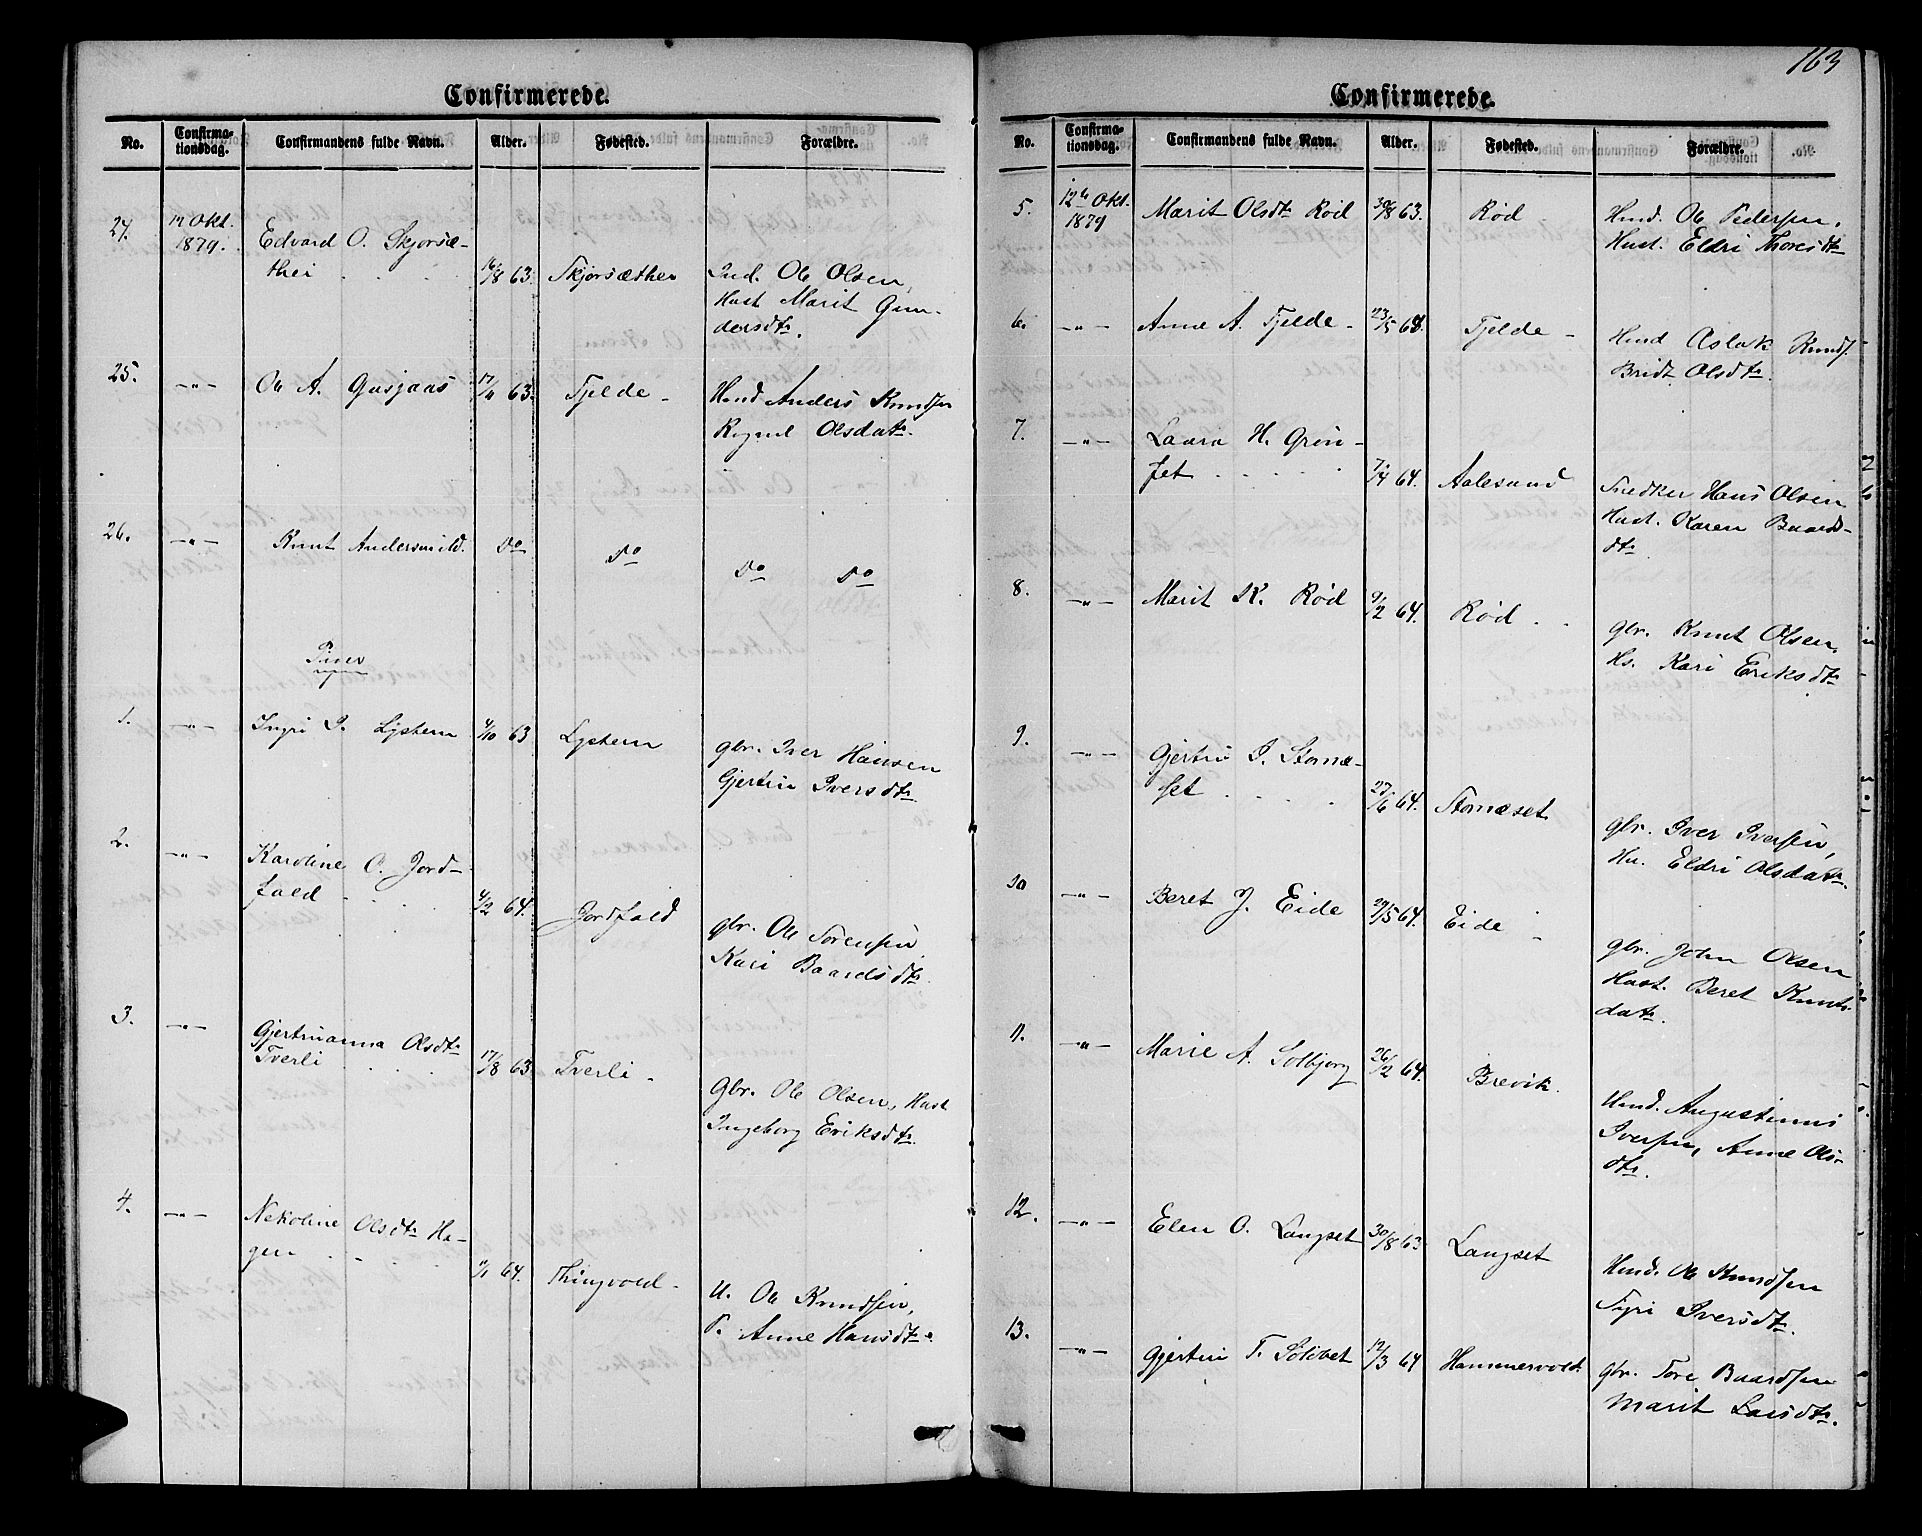 Confirmerede.
No. Confirma-tionsdag. Confirmandens fulde Navn. Alder. Fødested. Forældre.
27. 12 Okt. 1879. Edvard O. Skjorsæ-
thei 16/8 63. Skjorsæther Ind. Ole Olsen,
Hust Marit Gun-
dersdtr.
25. -"- Ole A. Gasjaas 17/4 63. Tjelde Hmd Anders Knudsen
Ragnil Olsdatr.
26. -"- Knut Andersmild. Do Do Do Do
Piger
1. -"- Ingri I. Lystem 4/10 63 Lystem gbr. Iver Hansen
Gjertru Iversdtr
2. -"- Karoline O. Jord-
fald 4/2 64. Jordfald gbr. Ole Sørensen,
Kari Baardsdtr.
3. -"- Gjertruanna Olsdtr
Tverli 17/8 63 Tverli Gbr. Ole Olsen, Hust
Ingeborg Eriksdtr
4. -"- Nekoline Olsdtr Ha-
gen 64. Thingvold U. Ole Knudsen,
P. Anne Hansdtr.
163
Confirmerede.
No. Confirma-tionsdag. Confirmandens fulde Navn. Alder. Fødested. Forældre.
5. 12te Okt. 1879 Marit Olsdtr Rød 30/8 63. Rød Hmd. Ole Pedersen,
Hust. Eldri Thoresdtr
6. -"- Anne A. Tjelde 23/5 68. Tjelde Hmd Aslak Knuds.
Bridt Olsdtr.
7. -"- Laura H. Grøn-
set 7/4 64. Aalesund Snedker Hans Olsen
Hust. Karen Baards-
dtr
8. -"- Marit K. Rød 9/2 64. Rød gbr. Knut Olsen,
Hs. Kari Eriksdtr
9. -"- Gjertru I. Stomæ-
set 27/6 64. Stomæset gbr. Iver Iversen,
Hu. Eldri Olsdatr.
10 -"- Beret J. Eide 29/5 64. Eide gbr. John Olsen
Hust. Beret Knuts-
datr.
11. -"- Marie A. Solbjorg 26/2 64. Brevik. Hmd. Augustinus
Iversen, Anne Ols-
dtr.
12. -"- Elen O. Langset 30/8 63 Langset Hmd. Ole Knudsen
Syri Iversdtr.
13. -"- Gjertru T. Solbet 12/3 64 Hammervold gbr. Tore Baardsen
Marit Larsdtr.